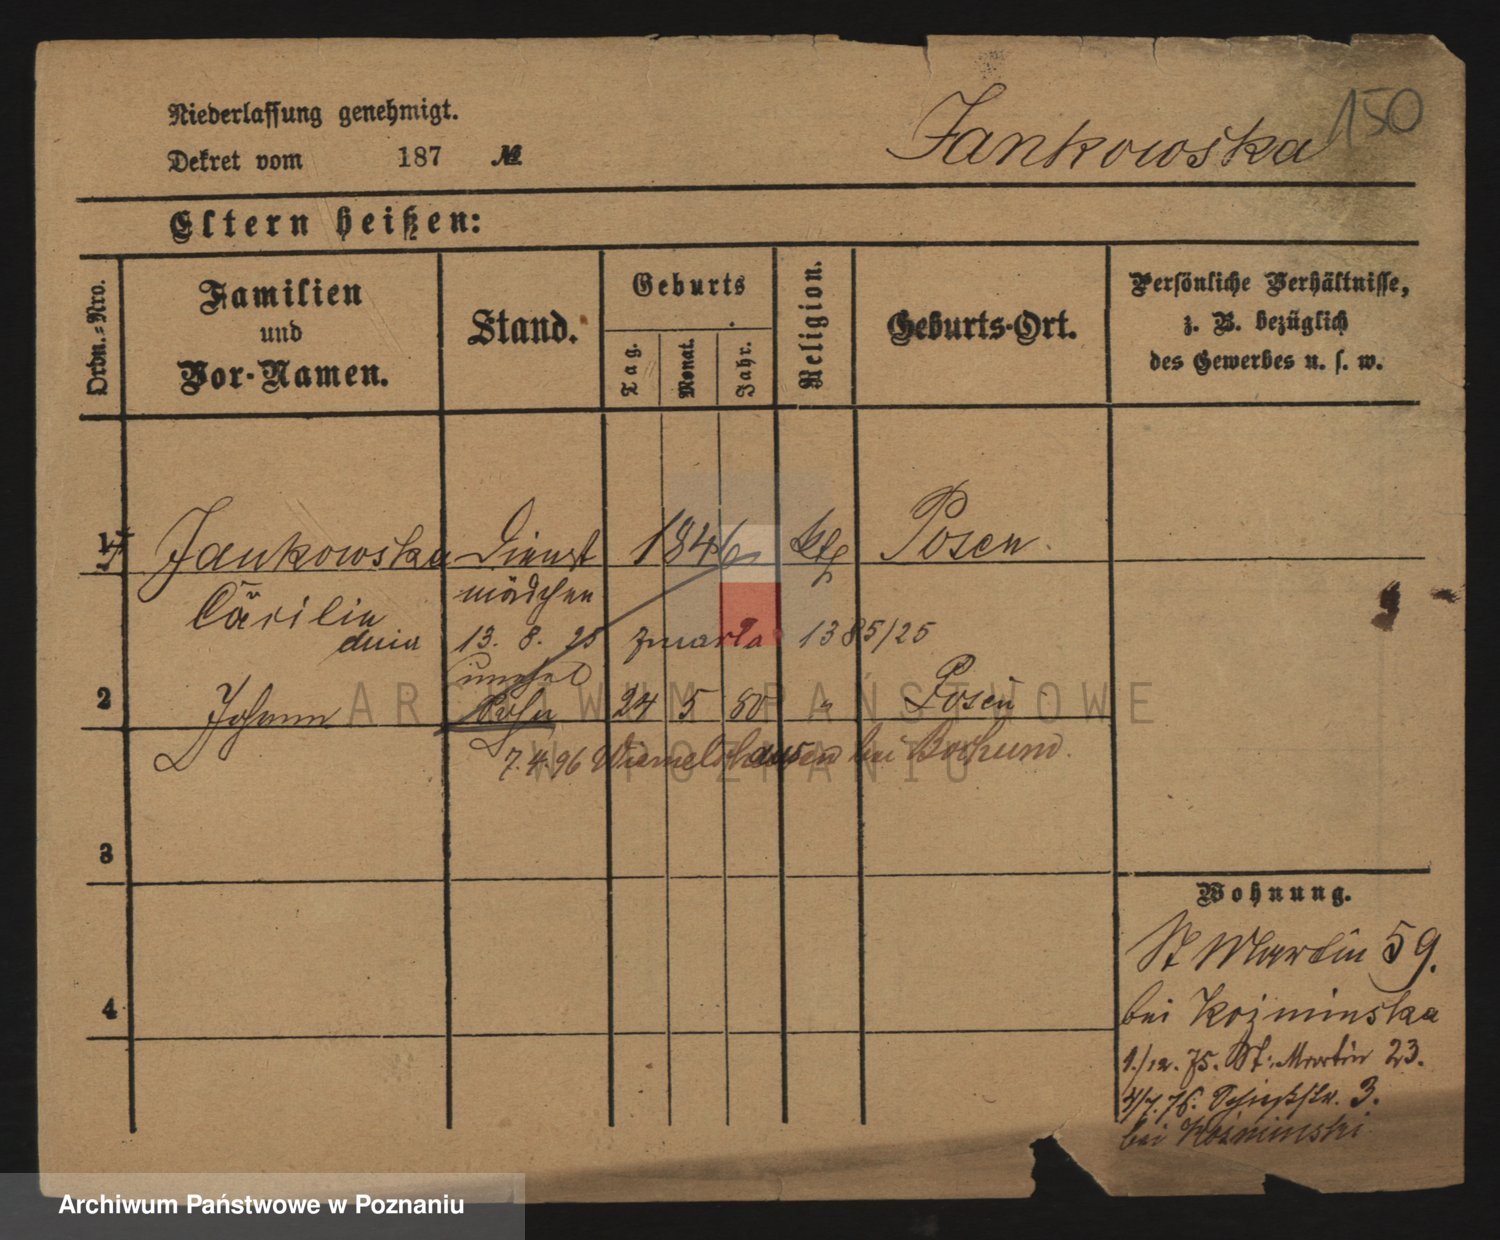 150
Niederlassung genehmigt.
Jankowska
Dekret vom 187 №
Eltern heißen:
Ordn.=Nro.
Familien
und
Vor-Namen.
Stand.
Geburts
Tag.
Monat.
Jahr.
Religion.
Geburts-Ort.
Persönliche Verhältnisse,
z. B. bezüglich
des Gewerbes u. s. w.
1 Jankowska Dienst 1846 ktf Posen.
mädchen
Cäcilia
dnia 13. 8. 25 zmarła 1385/25
unehel
2 Johann Sohn 24 5 80 " Posen
7.4.96 Wiemelshausen bei Bochum.
3
4
Wohnung.
St Martin 59.
bei Kozminska
1./12. 75. St. Martin 23.
4/7. 76. Schießstr. 3.
bei Kozminski
ARCHIWUM PAŃSTWOWE
W POZNANIU
Archiwum Państwowe w Poznaniu